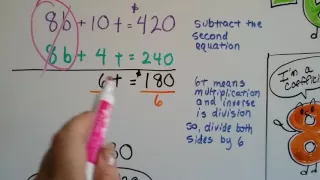 8b + 10t = $420
8b + 4t = 240
6t = $180
6
6
subtract the
second
equation
6T means
multiplication
and inverse
is division
So, divide both
sides by 6
I'm a
coefficient
8